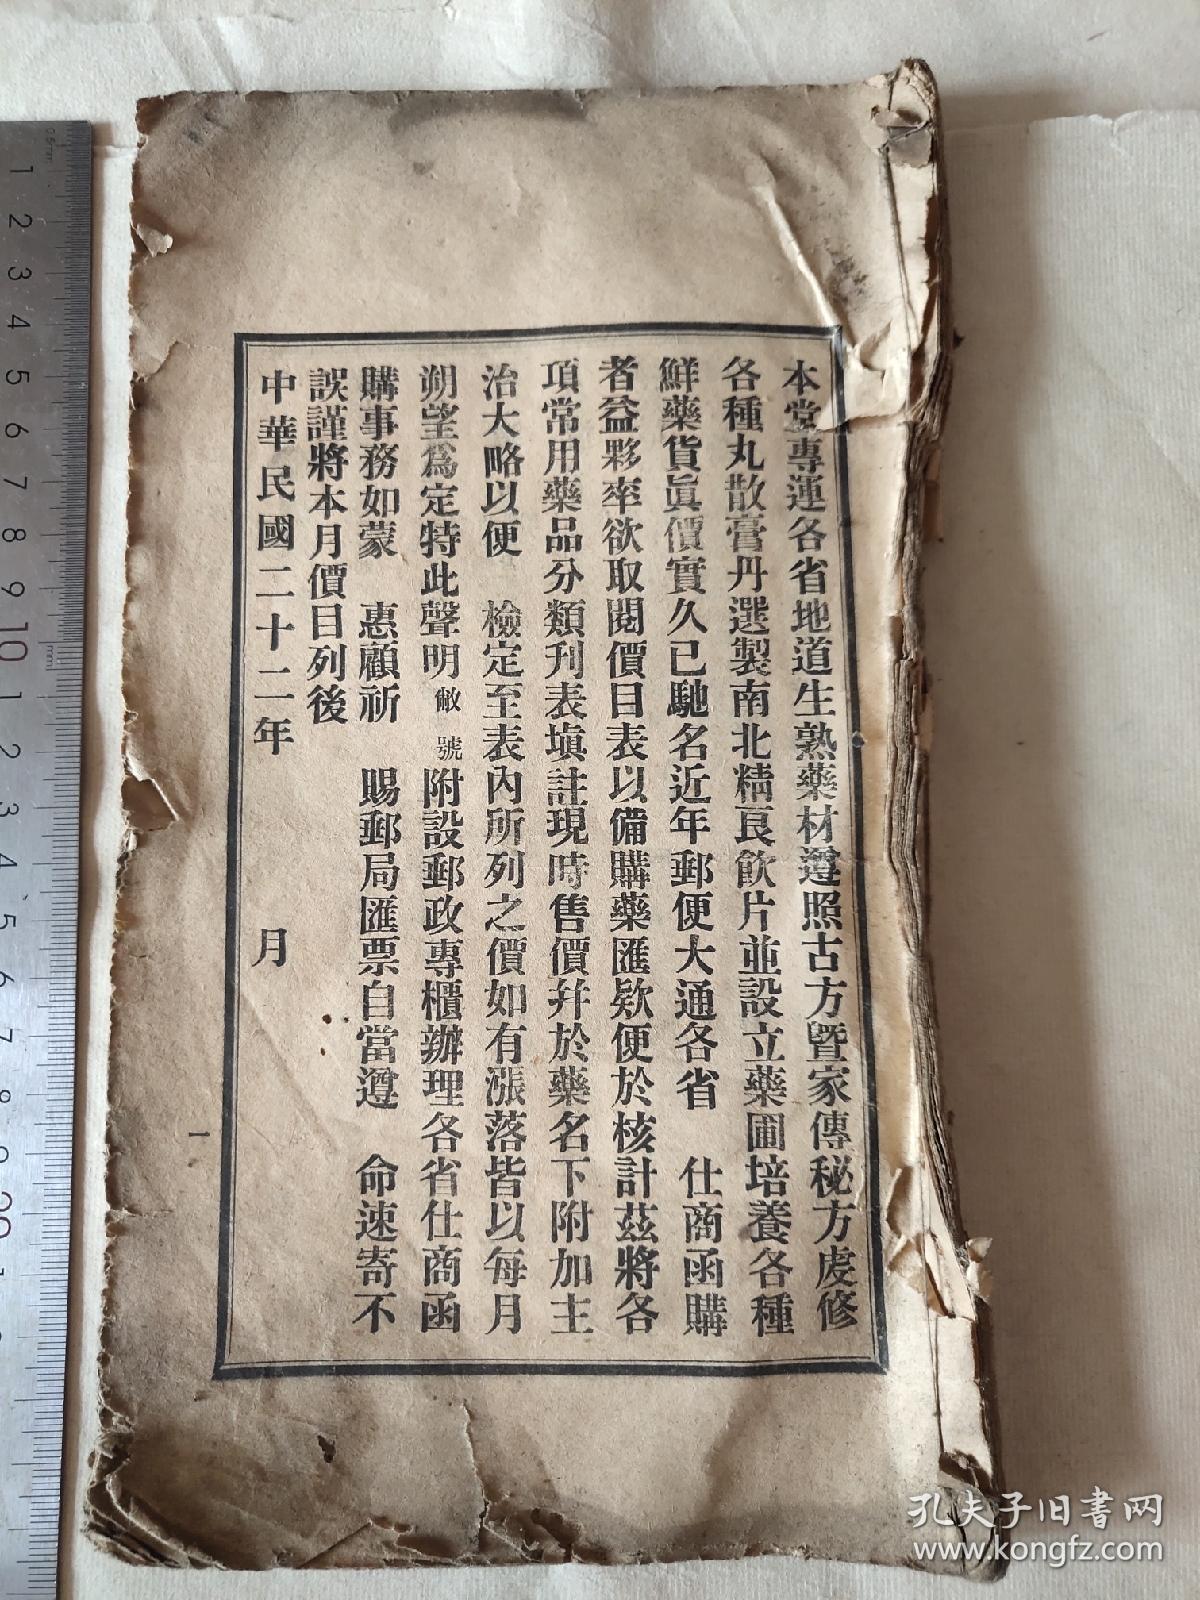 本堂專運各省地道生熟藥材遵照古方暨家傳秘方虔修
各種丸散膏丹選製南北精良飲片並設立藥圃培養各種
鮮藥貨眞價實久已馳名近年郵便大通各省　仕商函購
者益夥率欲取閱價目表以備購藥匯欵便於核計茲將各
項常用藥品分類刋表塡註現時售價幷於藥名下附加主
治大略以便　檢定至表內所列之價如有漲落皆以每月
朔望爲定特此聲明敝號附設郵政專櫃辦理各省仕商函
購事務如蒙　惠顧祈　賜郵局匯票自當遵　命速寄不
誤謹將本月價目列後
中華民國二十二年　月
一
0.5mm
1
2
3
4
5
6
7
8
9
10
1
2
3
4
5
6
7
8
9
20
1
mm
孔夫子旧书网
www.kongfz.com